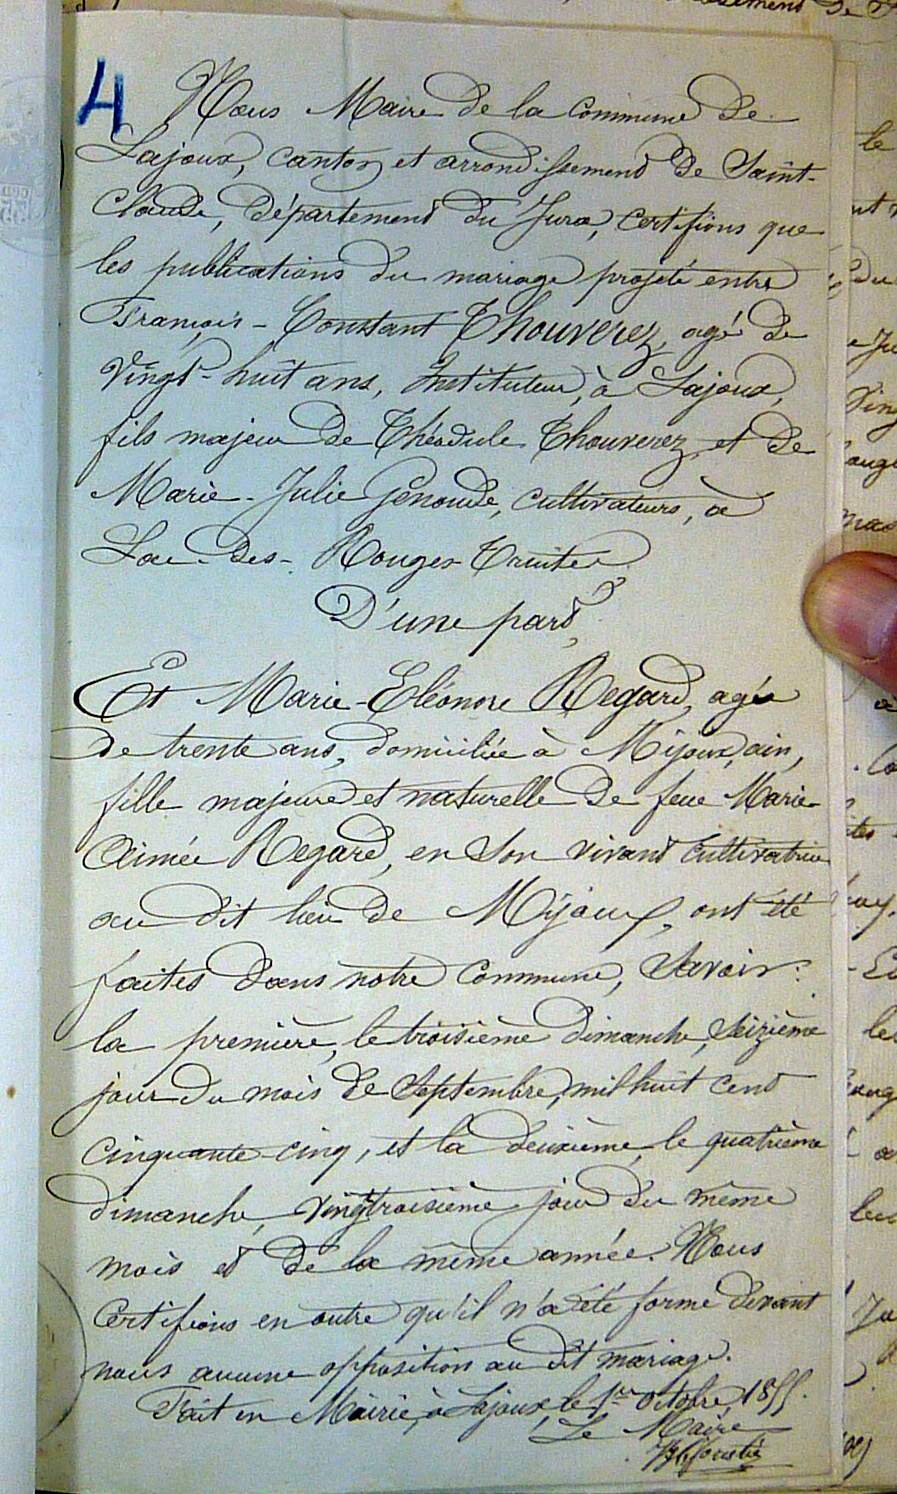 4
Nous Maire de la commune de
Lajoux, canton et arrondissement de Saint-
Claude, département du Jura, certifions que
les publications du mariage projeté entre
François-Constant Thouverez, agé de
vingt-huit ans, Instituteur, à Lajoux,
fils majeur de Théodule Thouverez et de
Marie-Julie Génoude, cultivateurs, à
Lac-des-Rouges-Truites
D'une part,
Et Marie-Eléonore Regard, agée
de trente ans, domiciliée à Mijoux, ain,
fille majeure et naturelle de feue Marie
Aimée Regard, en son vivant cultivatrice
au dit lieu de Mijoux, ont été
faites dans notre commune, Savoir:
la première, le troisième dimanche, Seizième
jour du mois de Septembre, mil huit cent
cinquante-cinq, et la deuxième, le quatrième
dimanche, vingttroisième jour du même
mois et de la même année. Nous
Certifions en outre qu'il n'a été forme devant
nous aucune opposition au dit mariage.
Fait en Mairie, à Lajoux, le 1er octobre, 1855.
Le Maire